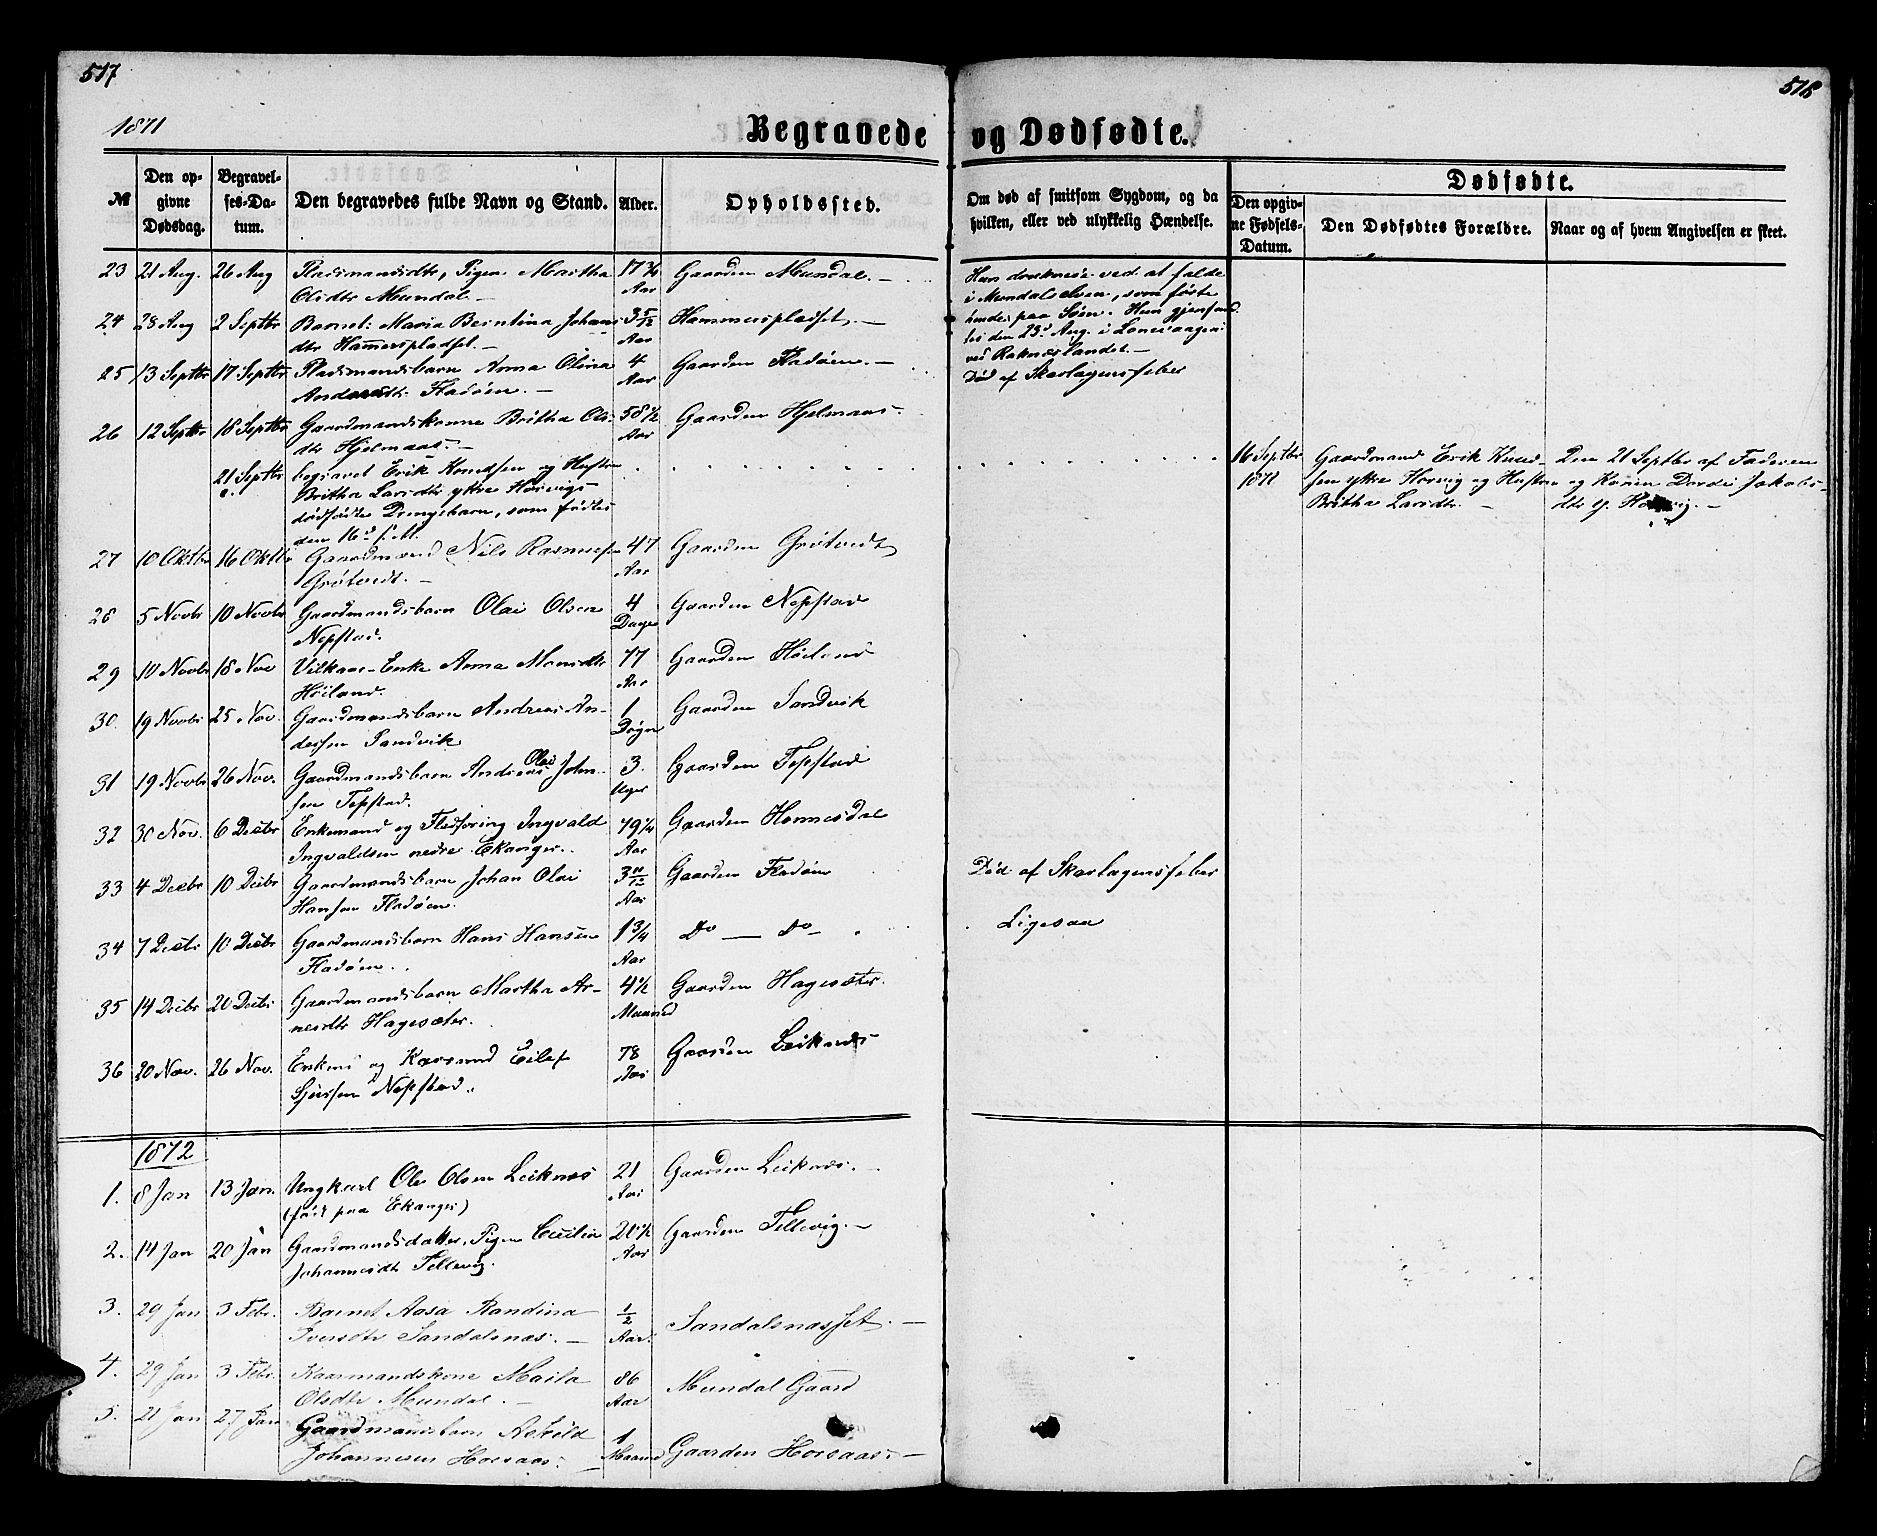 517
518
1871
Begravede og Dødfødte.
№
Den opgivne Dødsdag.
Begravelses-Datum.
Den begravedes fulde Navn og Stand.
Alder.
Opholdssted.
Om død af smitsom Sygdom, og da hvilken, eller ved ulykkelig Hændelse.
Dødfødte.
Den opgivne Fødsels-Datum.
Den Dødfødtes Forældre.
Naar og af hvem Angivelsen er skeet.
23 21 Aug. 26 Aug Pladsmandsdtr, Pigen Martha 17 3/4 Gaarden Mundal. —
Olsdtr Mundal — Aar
Hun druknede ved at falde
i Mundalselven, som førte
hende paa Søen. Hun gjenfand-
tes den 23d Aug. i Lonevaagen
ved Raknæslandet. —
24 28 Aug 2 Septbr Barnet Maria Berntina Johans 3 5/12 Hammerspladset. —
dtr Hammerspladset. — Aar
25 13 Septbr 17 Septbr Pladsmandsbarn Anna Olina 4 Gaarden Fladøen. — Død af Skarlagensfeber
Andersdtr Fladøen. — Aar
26 12 Septbr 18 Septbr Gaardmandskone Britha Ols- 58 1/2 Gaarden Hjelmaas.
dtr Hjelmaas. — Aar
21 Septbr begravet Erik Knudsen og Hustru
Britha Larsdtr ytre Horvigs
dødfødte Drengebarn, som fødtes
den 16d s. M.
16 Septbr Gaardmand Erik Knud- Den 21 Septbr af Faderen
1871 sen ytre Horvig og Hustru og Konen Dordei Jakobs-
Britha Larsdtr. — dtr y. Horvig. —
27 10 Oktbr 16 Oktbr Gaardmand Nils Rasmussen 47 Gaarden Grøtvedt
Grøtvedt. — Aar
28 5 Novbr 10 Novbr Gaardmandsbarn Olai Olsen 4 Gaarden Nepstad
Nepstad. Dage
29 10 Novbr 18 Nov Vilkaars-Enke Anna Monsdtr 77 Gaarden Høiland
Høiland. Aar
30 19 Novbr 25 Nov. Gaardmandsbarn Andreas An- 1 Gaarden Sandvik
dersen Sandvik Døgn
31 19 Novbr 26 Nov. Gaardmandsbarn Andreas Olai John- 3 Gaarden Tepstad
sen Tepstad. Uger
32 30 Nov. 6 Decbr Enkemand og Fladføring Ingvald 79 1/4 Gaarden Honnesdal
Ingvaldsen nedre Ekanger. Aar
33 4 Decbr 10 Decbr Gaardmandsbarn Johan Olai 3 11/12 Gaarden Fladøen Død af Skarlagensfeber
Hansen Fladøen. Aar
34 7 Decbr 10 Decbr Gaardmandsbarn Hans Hansen 1 3/4 Do — Do Ligesaa
Fladøen. Aar
35 14 Decbr 20 Decbr Gaardmandsbarn Martha Ar- 4 1/2 Gaarden Hagesæter.
nesdtr Hagesæter. Maaned
36 20 Nov. 26 Nov. Enkem. og Kaarmand Eilef 78 Gaarden Leiknes
Sjursen Nepstad. Aar
1872
1. 8 Jan 13 Jan. Ungkarl Ole Olsen Leiknæs 21 Gaarden Leiknæs.
(født paa Ekanger) Aar
2. 14 Jan 20 Jan Gaardmandsdatter, Pigen Cecilia 20 1/2 Gaarden Tellevig. —
Johannesdtr Tellevig. Aar
3. 29 Jan 3 Febr. Barnet Aasa Randina 1/2 Sandalsnæsset. —
Svensdtr Sandalsnæs. — Aar.
4. 29 Jan 3 Febr. Kaarmandskone Maita 86 Mundal Gaard
Olsdtr Mundal. — Aar
5. 21 Jan 27 Jan Gaardmandsbarn Askild 1 Gaarden Horsaas. —
Johannesen Horsaas. — Maaned